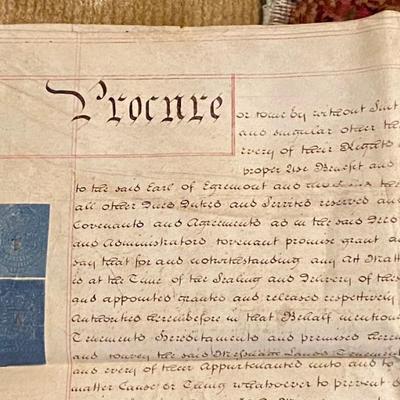 Procure
or come by without Suit
and singular other the
every of their Rights
proper Use Benefit and
to the said Earl of Egremont and
all other Dues Duties and Services reserved and
Covenants and Agreements as in the said Deed
and Administrators covenant promise grant
say that for and notwithstanding any Act Matt
is at the Time of the Sealing and Delivery of thes
and appointed granted and released respectively
Authorities hereinbefore in that Behalf mention
Tenements Hereditaments and premises herein
and convey the said Messuage Lands Tenement
and every of their Appurtenances unto and to
matter Cause or Thing whatsoever to prevent